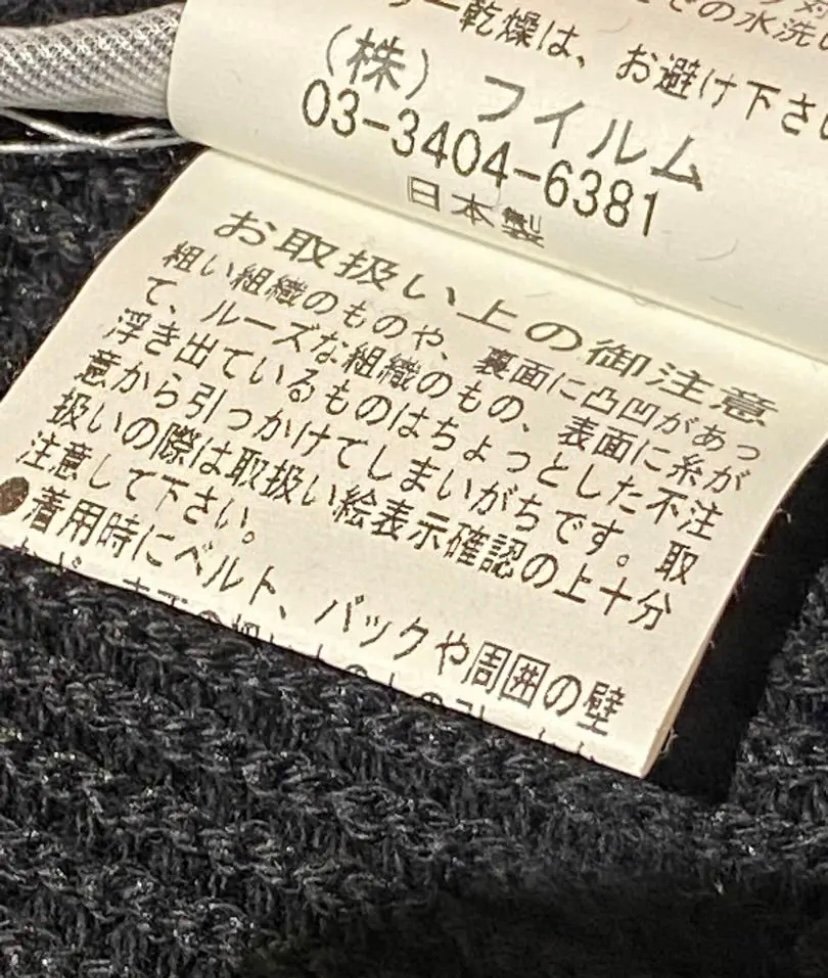 での水洗い
ー乾燥は、お避け下さい
（株）フイルム
03-3404-6381
日本製
お取扱い上の御注意
粗い組織のものや、裏面に凸凹があっ
て、ルーズな組織のもの、表面に糸が
浮き出ているものはちょっとした不注
意から引っかけてしまいがちです。取
扱いの際は取扱い絵表示確認の上十分
注意して下さい。
●着用時にベルト、バックや周囲の壁